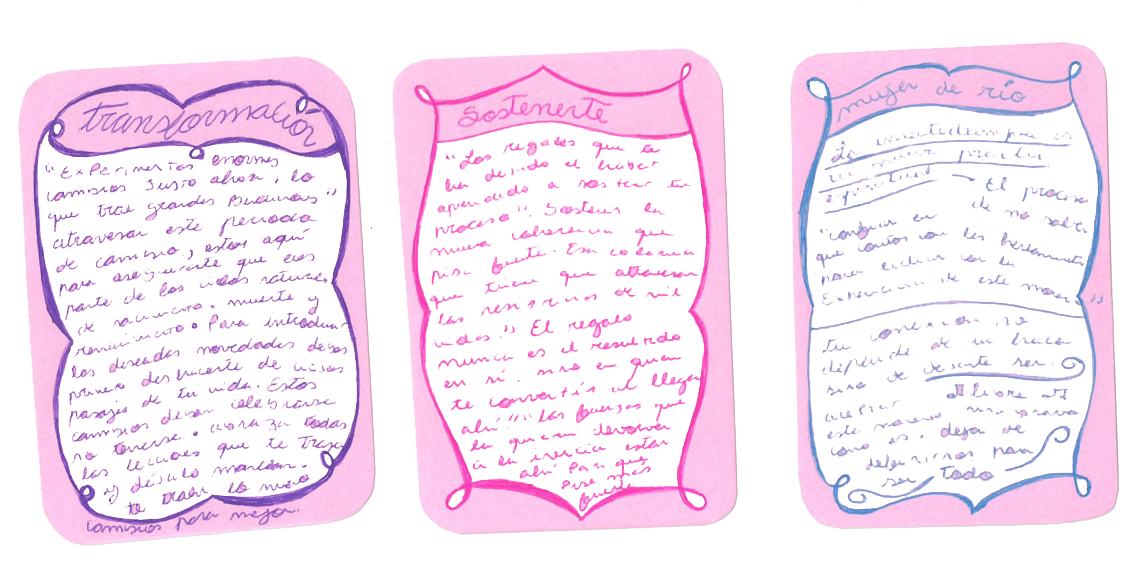 transformación
"Experimentas enormes
cambios justo ahora, lo
que trae grandes buenuras"
atravesar este periodo
de cambio, estoy aquí
para asegurarte que eres
parte de los ciclos naturales
de nacimiento. muerte y
renacimiento. Para introducir
las deseadas novedades debes
primero despedirte de viejos
pasajes de tu vida. Estos
cambios deben celebrarse
no temerse. abraza todas
las lecciones que te trajo
y déjalo marchar.
te traen lo nuevo
cambios para mejor.
Sostenerte
"Los regalos que te
ha dejado el haber
aprendido a sostener tu
proceso". Sostener la
nueva coherencia que
pisa fuerte. Esa coherencia
que tiene que atravesar
las de mil
vidas." El regalo
nunca es el resultado
en sí sino en quien
te convertís al llegar
ahí". las fuerzas que
la quieran devolver
a la inercia están
ahí para que
pise más
fuerte
mujer de río
La incertidumbre es
tu nueva práctica
espiritual → El proceso
de no saber
"confiar en
que cuentas con las herramientas
para lidiar con la
Experiencia de este momento"
tu conexión no
depende de un hacer
sino de dejarte ser.
aceptar
este momento
como es. deja de
definirnos para
ser todo